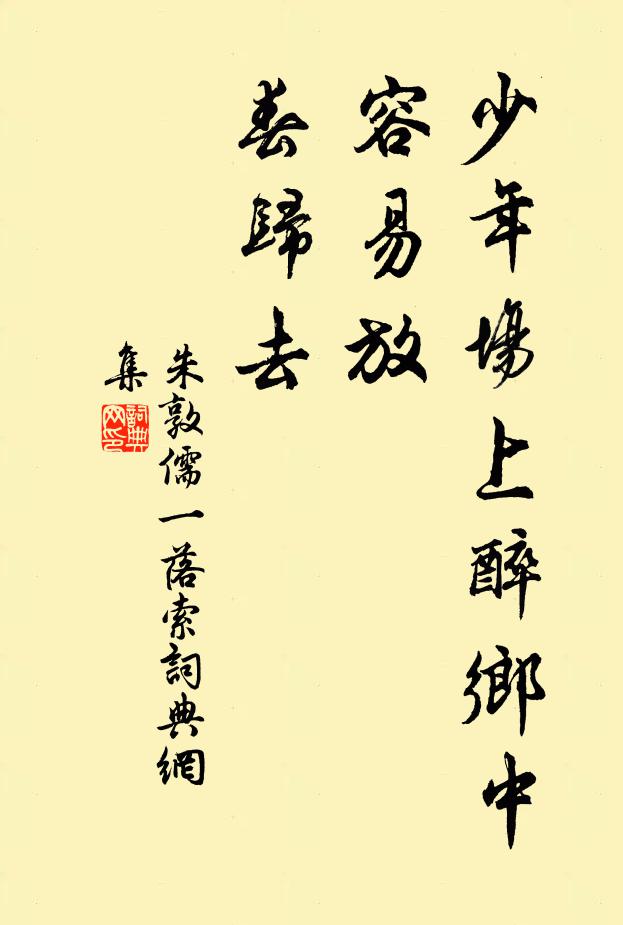 少年場上醉鄉中
容易放
春歸去
朱敦儒一落索詞典網
集
詞典
网印